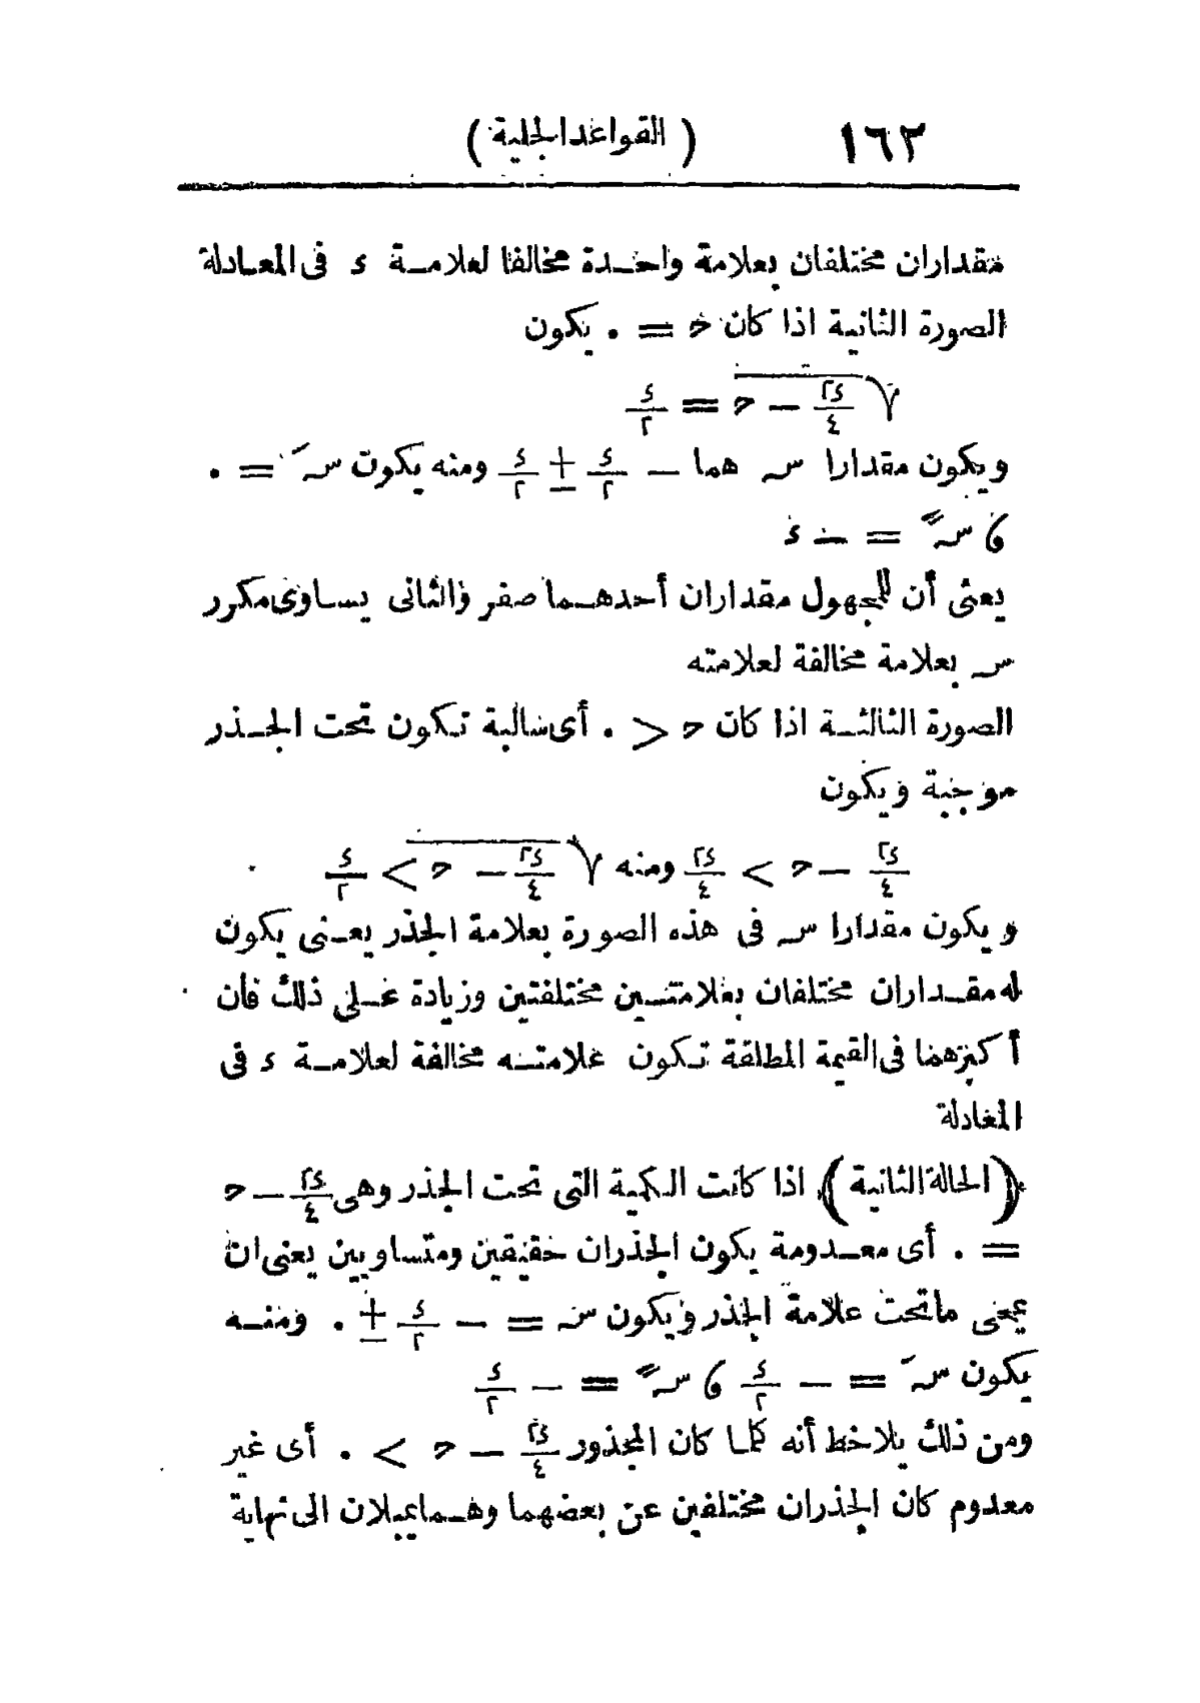 ١٦٢ (القواعد الجلية)
مقداران مختلفان بعلامة واحدة مخالفا لعلامة ء فى المعادلة
الصورة الثانية اذا كان ح = ٠ يكون
√(ء٢/٤ − ح) = ء/٢
ويكون مقدارا س هما − ء/٢ ± ء/٢ ومنه يكون سَ = ٠
ؤ سً = − ء
يعنى أن للمجهول مقداران أحدهما صفر والثانى يساوى مكرر
س بعلامة مخالفة لعلامته
الصورة الثالثة اذا كان ح > ٠ أى سالبة تكون تحت الجذر
موجبة ويكون
ء٢/٤ − ح < ء٢/٤ ومنه √(ء٢/٤ − ح) < ء/٢
ويكون مقدارا س فى هذه الصورة بعلامة الجذر يعنى يكون
له مقداران مختلفان بعلامتين مختلفتين وزيادة على ذلك فان
أكبرهما فى القيمة المطلقة تكون علامته مخالفة لعلامة ء فى
المعادلة
(الحالة الثانية) اذا كانت الكمية التى تحت الجذر وهى ء٢/٤ − ح
= ٠ أى معدومة يكون الجذران حقيقين ومتساويين يعنى ان
يمحى ما تحت علامة الجذر ويكون س = − ء/٢ ± ٠ ومنه
يكون سَ = − ء/٢ ؤ سً = − ء/٢
ومن ذلك يلاحظ أنه كلما كان المجذور ء٢/٤ − ح < ٠ أى غير
معدوم كان الجذران مختلفين عن بعضهما وهما يميلان الى نهاية